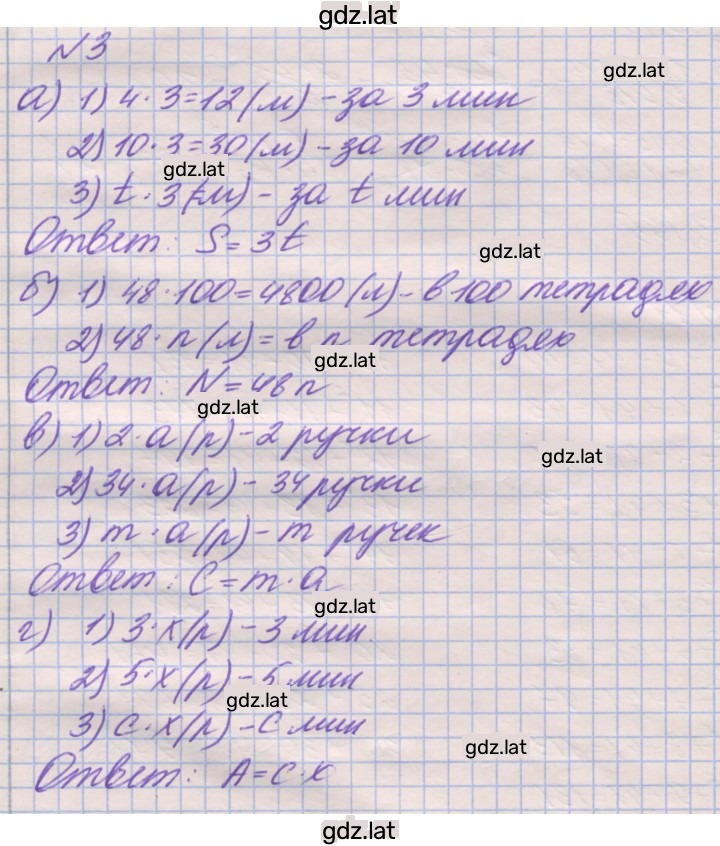 gdz.lat
№3
gdz.lat
а) 1) 4·3=12(м) - за 3 мин
2) 10·3=30(м) - за 10 мин
gdz.lat
3) t·3(м) - за t мин
Ответ: S=3t
gdz.lat
б) 1) 48·100=4800(л) - в 100 тетрадях
2) 48·n(л)= в n тетрадях
gdz.lat
Ответ: N=48n
gdz.lat
в) 1) 2·a(р) - 2 ручки
gdz.lat
2) 34·a(р) - 34 ручки
3) m·a(р) - m ручек
Ответ: C=m·a
gdz.lat
г) 1) 3·x(р) - 3 мин.
2) 5·x(р) - 5 мин
gdz.lat
3) c·x(р) - c мин
gdz.lat
Ответ: A=c·x
gdz.lat